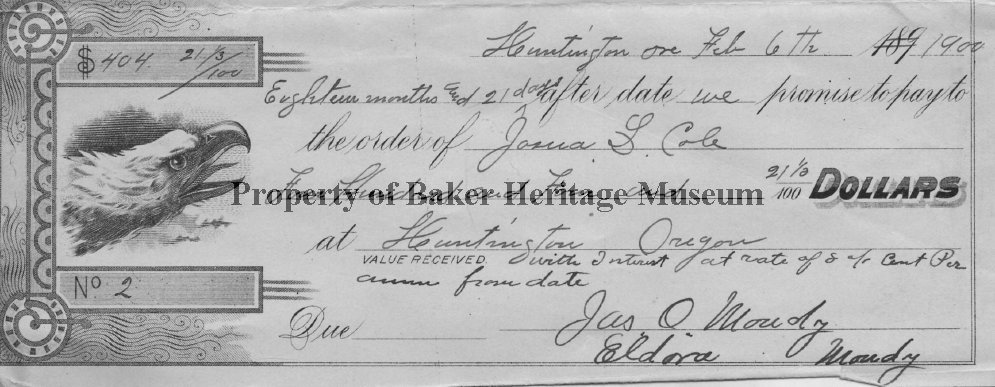 Huntington ore Feb 6th 189 1900
$ 404 21 1/3/100
Eighteen months and 21 days after date we promise to pay to
the order of Josua L. Cole
Four Hundred and Four and 21 1/3/100 DOLLARS
Property of Baker Heritage Museum
at Huntington Oregon
VALUE RECEIVED with Interest at rate of 8 % Cent Per
annum from date
No 2
Due
Jas. O. Moudy
Eldora Moudy